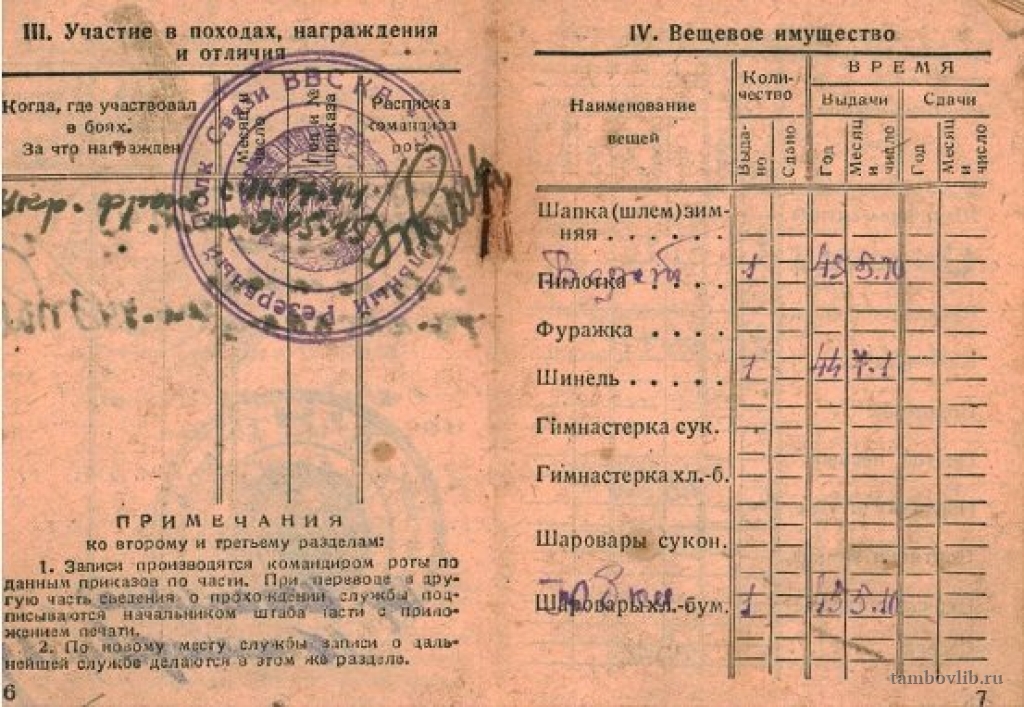 III. Участие в походах, награждения
и отличия
Когда, где участвовал
в боях.
За что награжден
Месяц и
число
Год и №
приказа
Расписка
командира
роты
Резервный полк Связи ВВС КА
ПРИМЕЧАНИЯ
ко второму и третьему разделам:
1. Записи производятся командиром роты по
данным приказов по части. При переводе в дру-
гую часть сведения о прохождении службы под-
писываются начальником штаба части с прило-
жением печати.
2. По новому месту службы записи о даль-
нейшей службе делаются в этом же разделе.
6
IV. Вещевое имущество
Наименование
вещей
Коли-
чество
ВРЕМЯ
Выдачи
Сдачи
Выда-
но
Сдано
Год
Месяц
и
число
Год
Месяц
и
число
Шапка (шлем) зим-
няя . . . . . .
Пилотка . . . . 1 45 5.10
Фуражка . . . .
Шинель . . . . . 1 44 7.1
Гимнастерка сук.
Гимнастерка хл.-б.
Шаровары сукон.
Шаровары хл.-бум. 1 45 5.10
7
tambovlib.ru